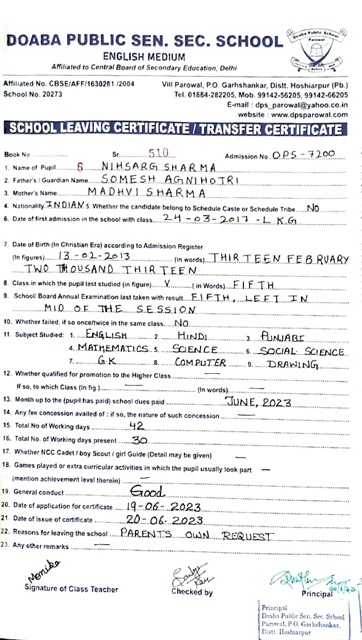 DOABA PUBLIC SEN. SEC. SCHOOL
ENGLISH MEDIUM
Affiliated to Central Board of Secondary Education, Delhi
Affiliated No. CBSE/AFF/1630281 /2004
School No. 20273
Vill Parowal, P.O. Garhshankar, Distt. Hoshiarpur (Pb.)
Tel. 01884-282205, Mob. 99142-56205, 99142-66205
E-mail : dps_parowal@yahoo.co.in
website : www.dpsparowal.com
SCHOOL LEAVING CERTIFICATE / TRANSFER CERTIFICATE
Book No Sr. 510 Admission No. DPS-7200
1. Name of Pupil NIHSARG SHARMA
2. Father's / Guardian Name SOMESH AGNIHOTRI
3. Mother's Name MADHVI SHARMA
4. Nationality INDIANS. Whether the candidate belong to Schedule Caste or Schedule Tribe NO
6. Date of first admission in the school with class 24-03-2017-L.K.G
7. Date of Birth (In Christian Era) according to Admission Register
(In figures) 13-02-2013 (in words) THIRTEEN FEBRUARY
TWO THOUSAND THIRTEEN
8. Class in which the pupil last studied (in figure) V (in Words) FIFTH
9. School/ Board Annual Examination last taken with result FIFTH, LEFT IN
MID OF THE SESSION
10. Whether failed, if so once/twice in the same class NO
11. Subject Studied : 1. ENGLISH 2. HINDI 3. PUNJABI
4. MATHEMATICS 5. SCIENCE 6. SOCIAL SCIENCE
7. GK 8. COMPUTER 9. DRAWING
12. Whether qualified for promotion to the Higher Class —
If so, to which Class (In fig.) — (In words) —
13. Month up to the (pupil has paid) school dues paid JUNE, 2023
14. Any fee concession availed of : if so, the nature of such concession —
15. Total No of Working days 42
16. Total No. of Working days present 30
17. Whether NCC Cadet / boy Scout / girl Guide (Detail may be given) —
18. Games played or extra curricular activities in which the pupil usually took part —
(mention achievement level therein) —
19. General conduct Good
20. Date of application for certificate 19-06-2023
21. Date of issue of certificate 20-06-2023
22. Reasons for leaving the school PARENTS OWN REQUEST
23. Any other remarks —
Monika
Signature of Class Teacher
Checked by
Principal
Principal
Doaba Public Sen. Sec. School
Parowal, P.O. Garhshankar,
Distt. Hoshiarpur